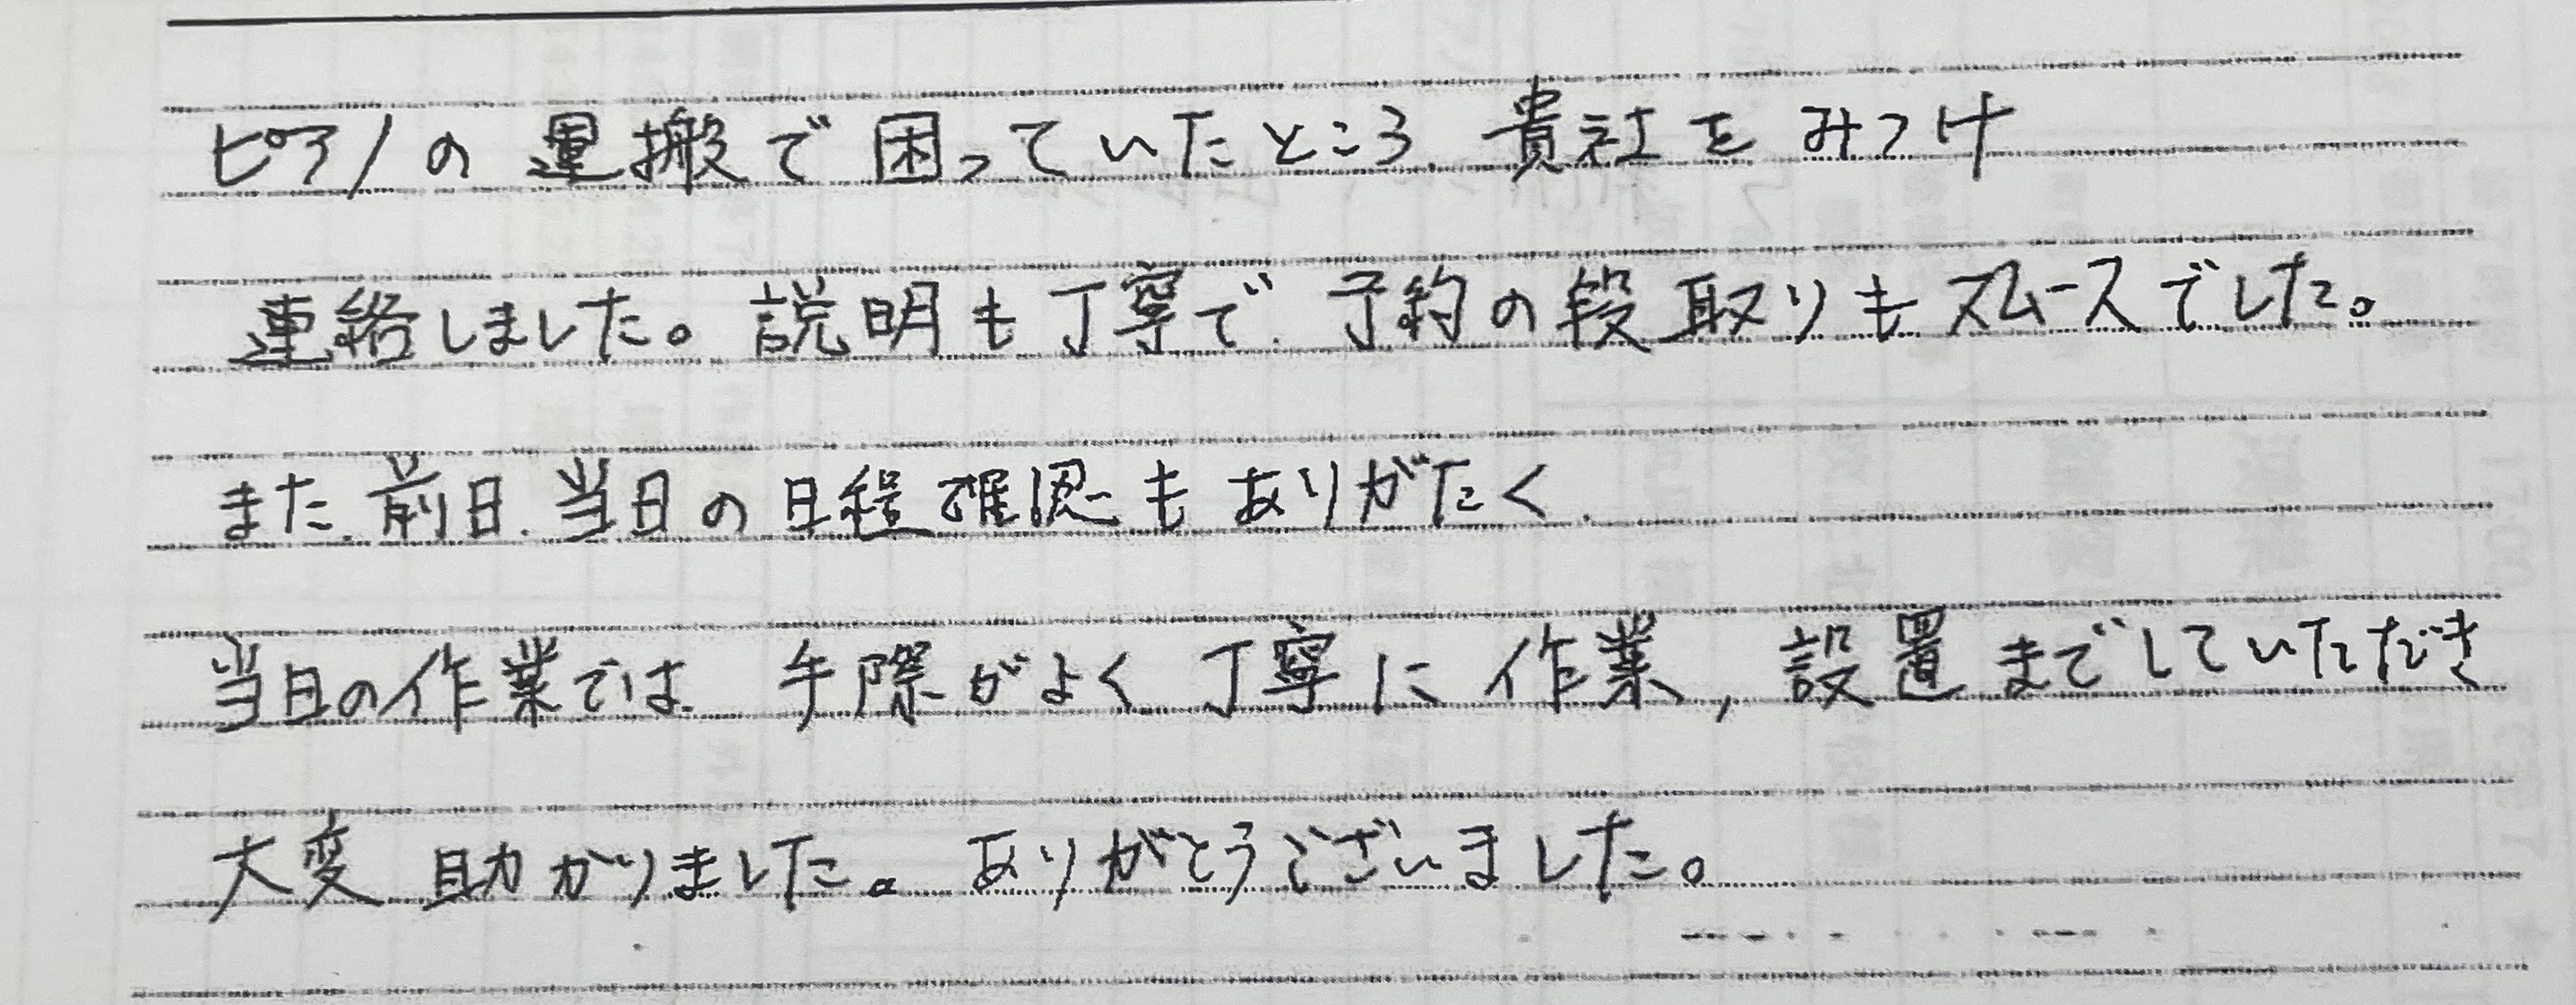 ピアノの運搬で困っていたところ、貴社をみつけ
連絡しました。説明も丁寧で、予約の段取りもスムースでした。
また、前日、当日の日程確認もありがたく、
当日の作業では、手際がよく丁寧に作業,設置までしていただき
大変助かりました。ありがとうございました。